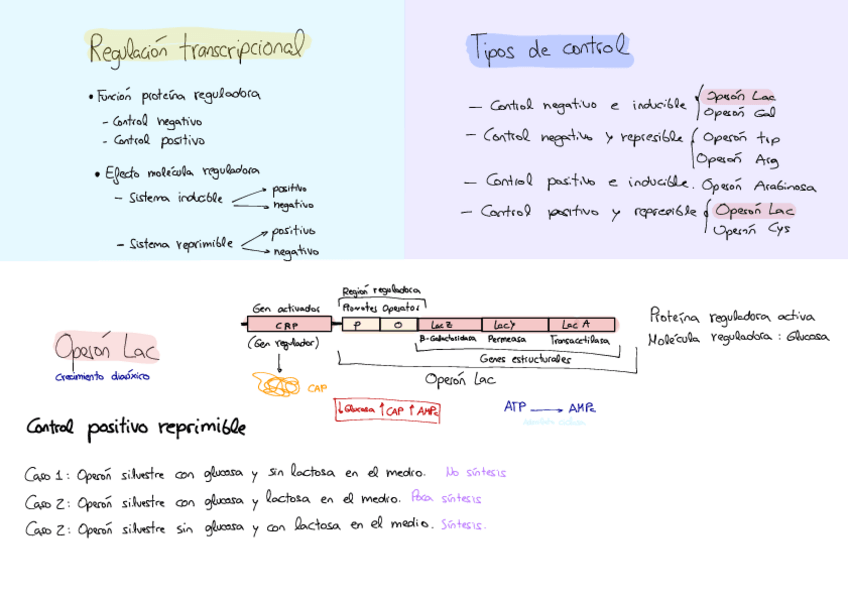 Regulación transcripcional
• Función proteína reguladora
- Control negativo
- Control positivo
• Efecto molécula reguladora
- Sistema inducible
positivo
negativo
- Sistema reprimible
positivo
negativo
Tipos de control
- Control negativo e inducible
Operón Lac
Operón Gal
- Control negativo y represible
Operón trp
Operón Arg
- Control positivo e inducible. Operón Arabinosa
- Control positivo y represible
Operón Lac
Operón Cys
Operón Lac
Crecimiento diaúxico
Gen activador
CRP
(Gen regulador)
CAP
Región reguladora
Promotor Operator
P O LacZ LacY Lac A
β-Galactosidasa Permeasa Transacetilasa
Genes estructurales
Operón Lac
↓Glucosa ↑CAP ↑AMPc
ATP → AMPc
Proteína reguladora activa
Molécula reguladora: Glucosa
Control positivo reprimible
Caso 1: Operón silvestre con glucosa y sin lactosa en el medro. No síntesis
Caso 2: Operón silvestre con glucosa y lactosa en el medro. Poca síntesis
Caso 2: Operón silvestre sin glucosa y con lactosa en el medio. Síntesis.